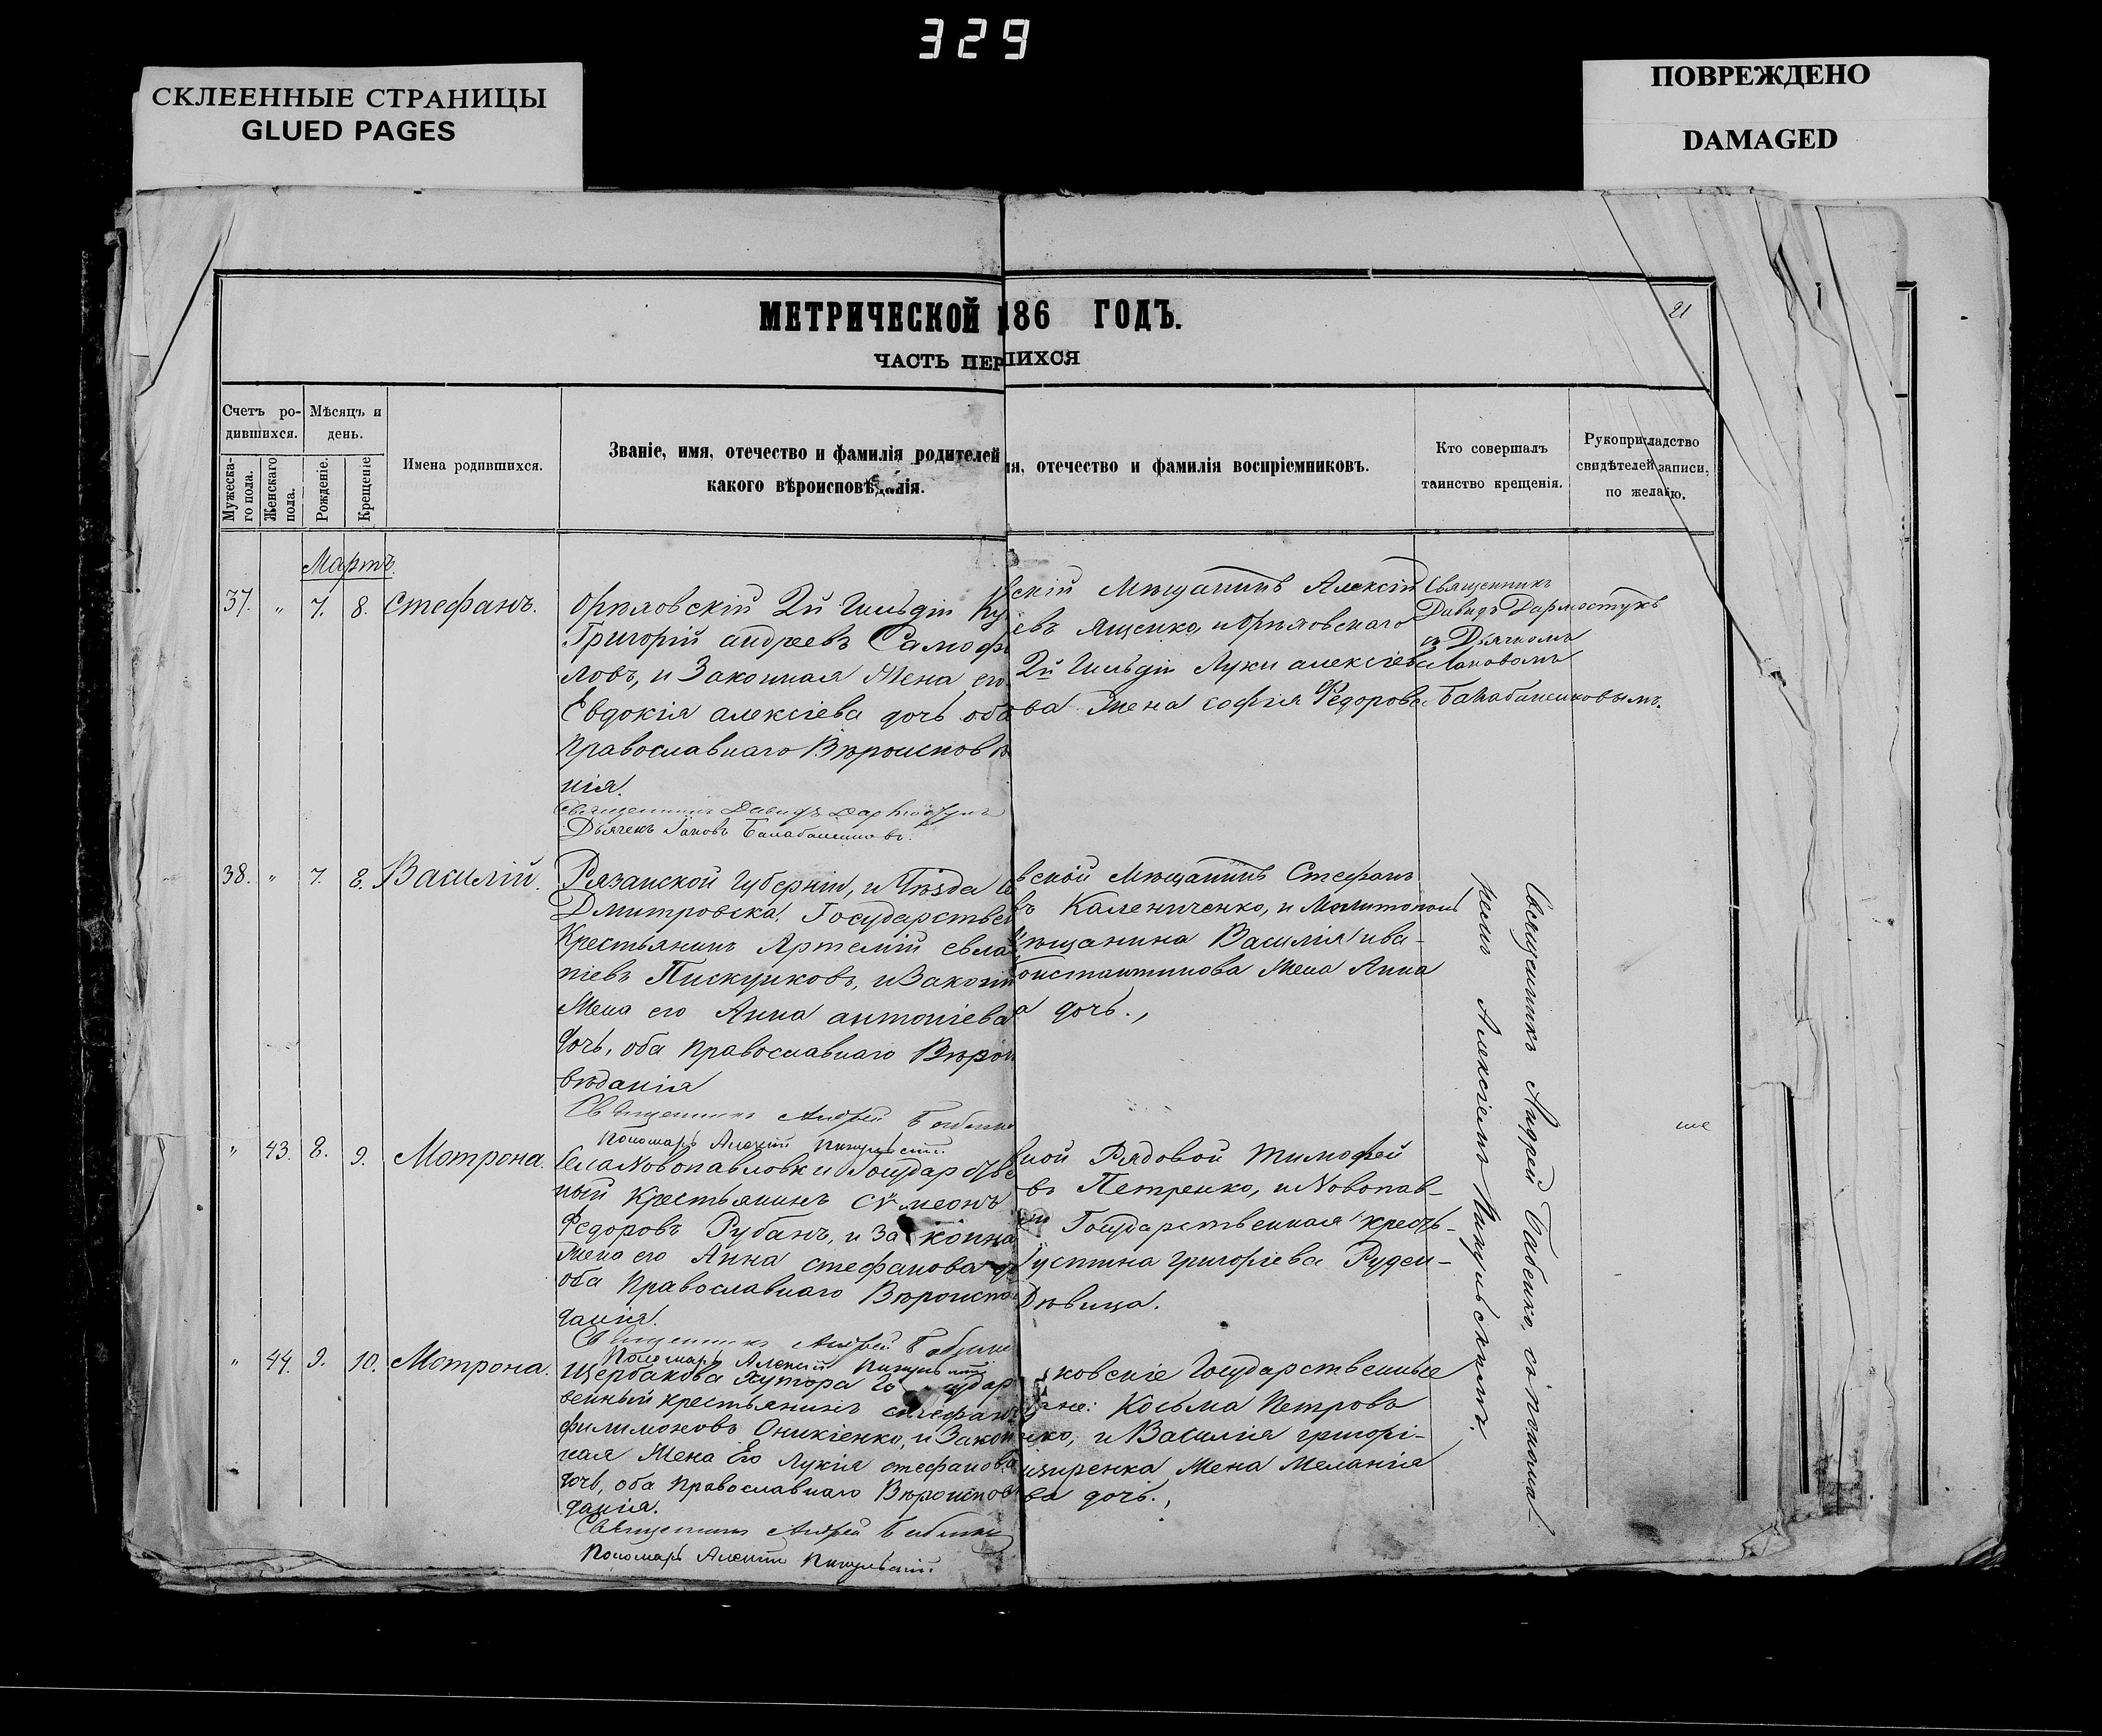 329
СКЛЕЕННЫЕ СТРАНИЦЫ
GLUED PAGES
ПОВРЕЖДЕНО
DAMAGED
21
МЕТРИЧЕСКОЙ 186 ГОДЪ.
ЧАСТЬ ПЕР ШИХСЯ
Счетъ ро-
дившихся.
Мужеска-
го пола.
Женскаго
пола.
Мѣсяцъ и
день.
Рожденіе.
Крещеніе
Имена родившихся.
Званіе, имя, отечество и фамилія родителей
какого вѣроисповѣданія.
я, отечество и фамилія воспріемниковъ.
Кто совершалъ
таинство крещенія.
Рукоприкладство
свидѣтелей записи,
по желанію.
Мартъ.
37. " 7. 8. Стефанъ.
Орѣховскій 2й Гильдіи Ку
Григорій андреевъ Самоф
ловъ, и Законная Жена его
Евдокія алексіева дочь оба
Православнаго Вѣроисповѣ
нія.
Священникъ Давидъ Дармостукъ
Дьячекъ Іаковъ Балабанниковъ.
скій Мѣщанинъ Алексій
евъ Ященко, и Орѣховскаго
2й Гильдіи Луки алексіева
ва Жена софія Федорова
Священникъ
Давидъ Дармостукъ
съ Дьячкомъ
Іаковомъ
Балабанниковымъ.
38. " 7. 8. Василій.
Рязанской Губерніи, и Уѣзда
Дмитровска. Государствен
Крестьянинъ Артемій евла
піевъ Пискуновъ, и Законн
Жена его Анна антоніева
дочь, оба Православнаго Вѣрои
вѣданія
Священникъ Андрей Бабенко
Пономарь Алексій Пигульскій.
вской Мѣщанинъ Стефанъ
въ Калениченко, и Мелитополь
мѣщанина Василія ива-
Константинова Жена Анна
а дочь.,
Священникъ Андрей Бабенко, съ понома-
ремъ Алексіемъ Пигульскимъ.
" 43. 8. 9. Мотрона.
Села Новопавловки Государстве
ный Крестьянинъ Сѵмеонъ
Федоровъ Рубанъ, и Законна
Жена его Анна стефанова до
оба Православнаго Вѣроиспо
данія.
Священникъ Андрей Бабенко
Пономарь Алексій Пигульскій
ной Рядовой Тимофей
въ Петренко, и Новопав-
ки Государственная крестъ-
Іустина григоріева Руден-
Дѣвица.
" 44. 9. 10. Мотрона.
Щербакова Хутора Государ
венный крестьянинъ стефанъ
филимоновъ Оникіенко, и Закон
ная Жена Его Лукія стефанова
дочь, оба Православнаго Вѣроиспов
данія.
Священникъ Андрей Бабенко
Пономарь Алексій Пигульскій.
ковскіе Государственные
яне: Косьма Петровъ
нко, и Василія григорі-
Жена Меланія
ва дочь.,